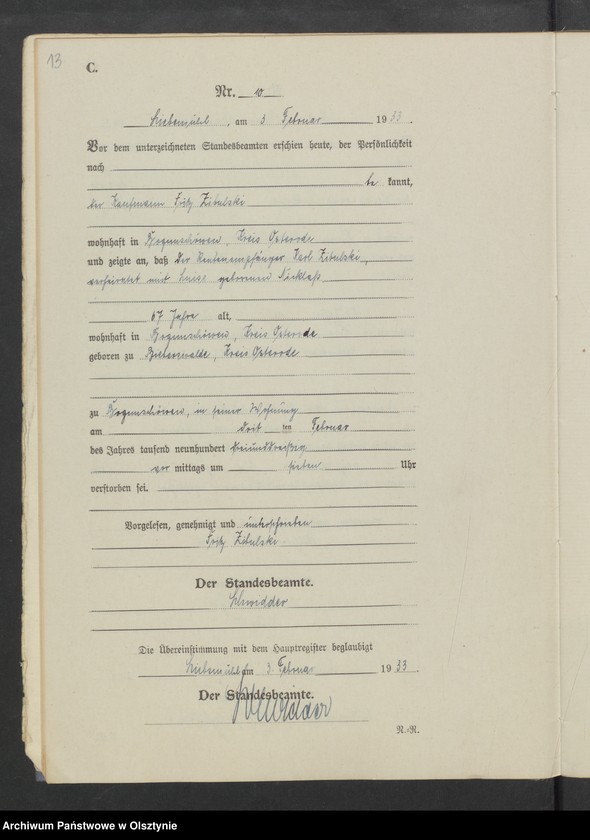 13
C.
Nr. 10
Liebemühl, am 3 Februar 1933.
Vor dem unterzeichneten Standesbeamten erschien heute, der Persönlichkeit
nach
be kannt,
der Kaufmann Fritz Zibulski
wohnhaft in Bogunschöwen, Kreis Osterode
und zeigte an, daß der Rentenempfänger Karl Zibulski,
verheiratet mit geborenen Nicklaß
67 Jahre alt,
wohnhaft in Bogunschöwen, Kreis Osterode
geboren zu Bieberswalde, Kreis Osterode
zu Bogunschöwen, in seiner Wohnung
am dritten Februar
des Jahres tausend neunhundert dreiunddreißig
vor mittags um sieben Uhr
verstorben sei.
Vorgelesen, genehmigt und unterschrieben
Fritz Zibulski
Der Standesbeamte.
Schwidder
Die Übereinstimmung mit dem Hauptregister beglaubigt
Liebemühl am 3. Februar 1933.
Der Standesbeamte.
Schwidder
R.-N.
Archiwum Państwowe w Olsztynie